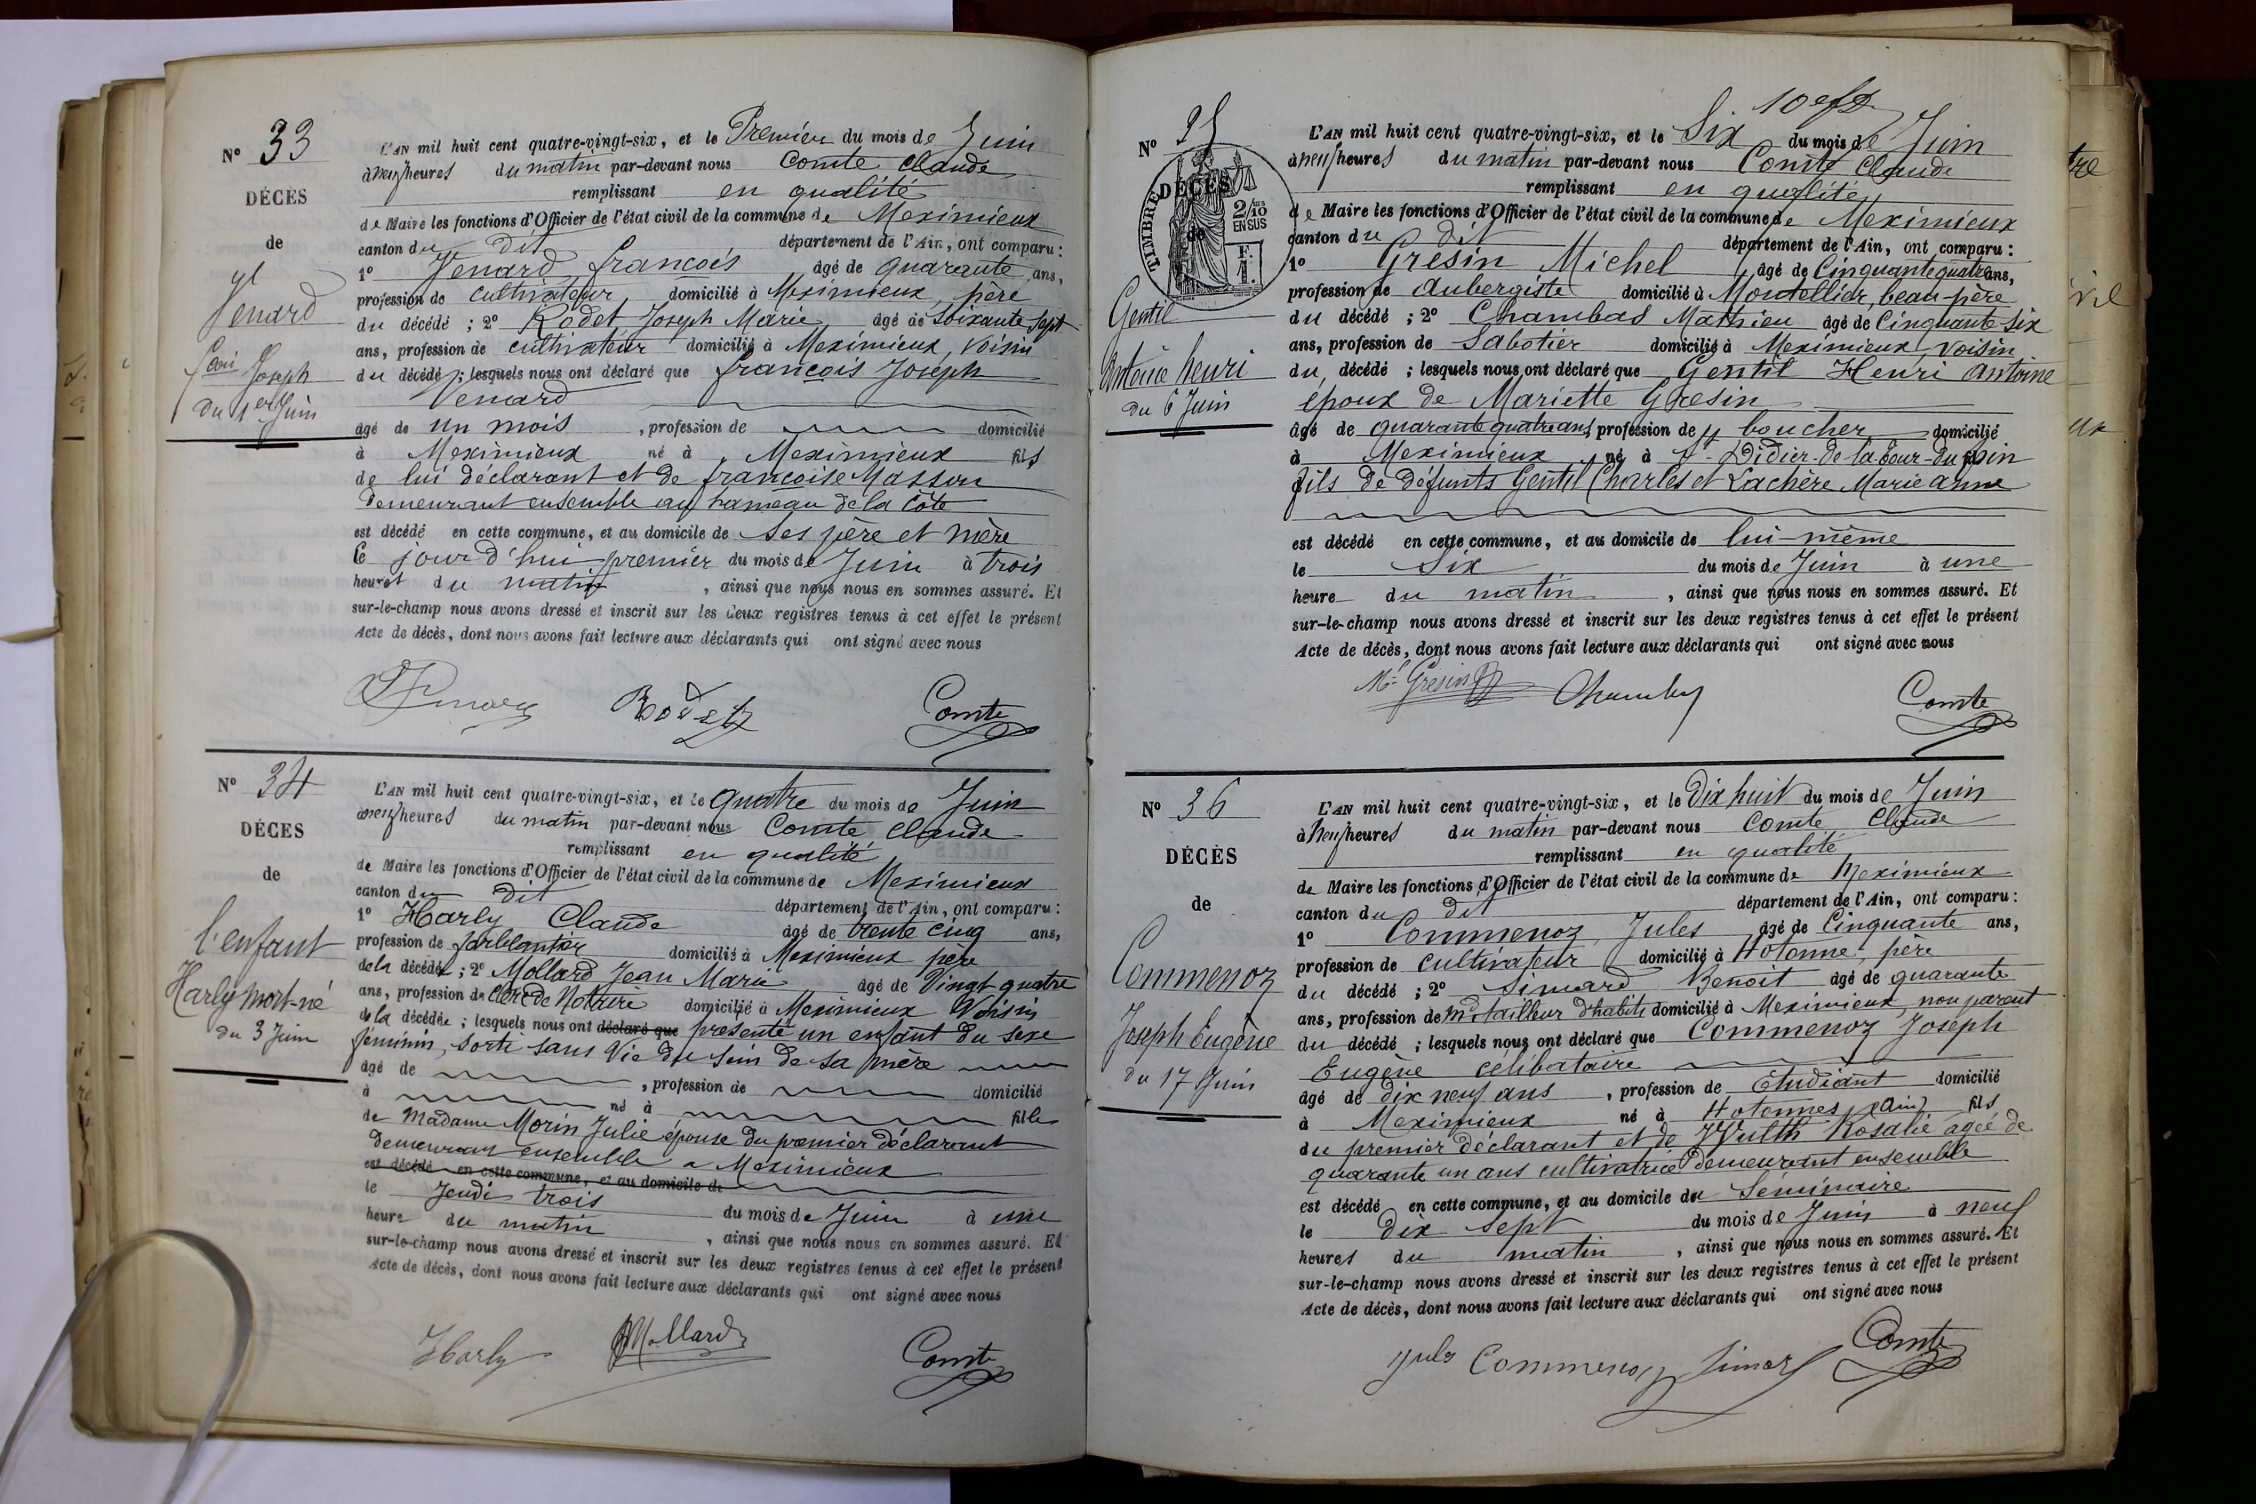 N° 33
DÉCÈS
de
Venard
Joseph
du 1er Juin
L'AN mil huit cent quatre-vingt-six, et le Premier du mois de Juin
à neuf heures du matin par-devant nous Comte Claude
remplissant en qualité
de Maire les fonctions d'Officier de l'état civil de la commune de Meximieux
canton du dit département de l'Ain, ont comparu :
1° Venard françois âgé de quarante ans,
profession de cultivateur domicilié à Meximieux, père
du décédé ; 2° Rodet Joseph Marie âgé de Soixante Sept
ans, profession de cultivateur domicilié à Meximieux, Voisin
du décédé ; lesquels nous ont déclaré que françois Joseph
Venard
âgé de un mois , profession de domicilié
à Meximieux né à Meximieux fils
de lui déclarant et de françoise Masson
demeurant ensemble au hameau de la Côte
est décédé en cette commune, et au domicile de ses père et mère
le jourd'hui premier du mois de Juin à trois
heures du matin , ainsi que nous nous en sommes assuré. Et
sur-le-champ nous avons dressé et inscrit sur les deux registres tenus à cet effet le présent
Acte de décès, dont nous avons fait lecture aux déclarants qui ont signé avec nous
Rodet Comte
N° 34
DÉCÈS
de
l'enfant
Harly mort-né
du 3 Juin
L'AN mil huit cent quatre-vingt-six, et le quatre du mois de Juin
à neuf heures du matin par-devant nous Comte Claude
remplissant en qualité
de Maire les fonctions d'Officier de l'état civil de la commune de Meximieux
canton du dit département de l'Ain, ont comparu :
1° Harly Claude âgé de trente cinq ans,
profession de ferblantier domicilié à Meximieux père
de la décédée ; 2° Mollard Jean Marie âgé de Vingt quatre
ans, profession de Clerc de Notaire domicilié à Meximieux Voisin
de la décédée ; lesquels nous ont déclaré que présenté un enfant du sexe
féminin, sorti sans Vie du sein de sa mère
âgé de , profession de domicilié
à né à fille
de Madame Morin Julie épouse du premier déclarant
demeurant ensemble a Meximieux
est décédé en cette commune, et au domicile de
le Jeudi trois du mois de Juin à une
heure du matin , ainsi que nous nous en sommes assuré. Et
sur-le-champ nous avons dressé et inscrit sur les deux registres tenus à cet effet le présent
Acte de décès, dont nous avons fait lecture aux déclarants qui ont signé avec nous
Harly Mollard Comte
N° 35
TIMBRE
2/10 EN SUS
DÉCÈS
de
Gentil
Antoine henri
du 6 Juin
L'AN mil huit cent quatre-vingt-six, et le Six du mois de Juin
à neuf heures du matin par-devant nous Comte Claude
remplissant en qualité
de Maire les fonctions d'Officier de l'état civil de la commune de Meximieux
canton du dit département de l'Ain, ont comparu :
1° Gresin Michel âgé de Cinquante quatre ans,
profession de aubergiste domicilié à Montellier, beau-père
du décédé ; 2° Chambas Mathieu âgé de Cinquante-six
ans, profession de Sabotier domicilié à Meximieux Voisin
du décédé ; lesquels nous ont déclaré que Gentil Henri Antoine
époux de Mariette Gresin
âgé de quarante quatre ans, profession de boucher domicilié
à Meximieux né à St Didier-de-la-Tour-du-pin
fils de défunts Gentil Charles et Lachère Marie anne
est décédé en cette commune, et au domicile de lui-même
le Six du mois de Juin à une
heure du matin , ainsi que nous nous en sommes assuré. Et
sur-le-champ nous avons dressé et inscrit sur les deux registres tenus à cet effet le présent
Acte de décès, dont nous avons fait lecture aux déclarants qui ont signé avec nous
Mel Gresin Comte
N° 36
DÉCÈS
de
Commenoz
Joseph Eugène
du 17 Juin
L'AN mil huit cent quatre-vingt-six, et le Dix huit du mois de Juin
à Neuf heures du matin par-devant nous Comte Claude
remplissant en qualité
de Maire les fonctions d'Officier de l'état civil de la commune de Meximieux
canton du dit département de l'Ain, ont comparu :
1° Commenoz Jules âgé de Cinquante ans,
profession de cultivateur domicilié à Hotonne, père
du décédé ; 2° Simard Benoit âgé de quarante
ans, profession de Md tailleur d'habits domicilié à Meximieux, non parent
du décédé ; lesquels nous ont déclaré que Commenoz Joseph
Eugène célibataire
âgé de dix neuf ans , profession de Etudiant domicilié
à Meximieux né à Hotonnes (Ain) fils
du premier déclarant et de Vulth Rosalie agée de
quarante un ans cultivatrice demeurant ensemble
est décédé en cette commune, et au domicile du Séminaire
le dix sept du mois de Juin à neuf
heures du matin , ainsi que nous nous en sommes assuré. Et
sur-le-champ nous avons dressé et inscrit sur les deux registres tenus à cet effet le présent
Acte de décès, dont nous avons fait lecture aux déclarants qui ont signé avec nous
Jules Commenoz Simard Comte